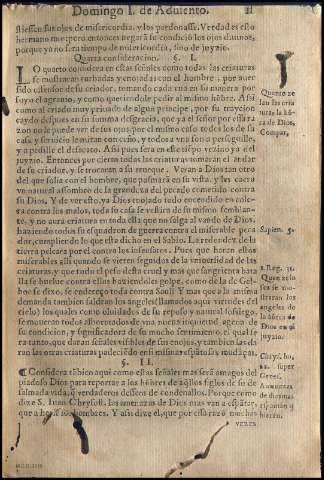 Domingo I. de Aduiento. 11
stiessen sus ojos de misericordia, y los perdonasse. Verdad es esto
hermano mio; pero entonces negarà su condicion los ojos diuinos,
porque ya no sera tiempo de misericordia, sino de juyzio.
Quarta consideracion. §. I.
LO quarto considera en estas señales como todas las criaturas
se mostraran turbadas y enojadas con el hombre, por auer
sido ofensor de su criador, tomando cada cual en su manera por
suyo el agrauio, y como queriendole pedir al mismo hôbre. Assi
como al criado muy priuado de algun principe, que su trayciō
caydo despues en su summa desgracia, que ya el señor por essa ra
zon no le puede ver de sus ojos, por el mismo caso todos los de su
casa y seruicio le miran con ceño, y todos a vna son o perseguille,
y a pedille el desecto. Assi pues sera en este
juyzio. Entonces por cierto todas las criaturas tomaran el
de su criador, y se trocaran a su trueque. Veran a Dios tan otro
del que solia con el hombre, que pasmarà en su vista, y les
ve natural assombro de la grandeza del pecado cometido contra
su Dios. Y de ver esto, ya Dios enojado todo encendido en cole-
ra contra los malos, toda su casa se vestirà de su mismo semblan-
te, y no aura criatura en toda ella que no salga al vando de Dios,
haziendo todos su esquadron de guerra contra el miserable peca
dor, cumpliendo lo que esta dicho en el Sabio. La redondez de la
tierra peleara por el contra los insensatos. Pues que haran ellos
miserables alli quando se vieren segundos de la vniuersidad de las
criaturas, y que todo el peso desta cruel y mas que sangrienta bata
lla se buelue contra ellos haziendo les golpe, como de la de Gel-
boe se dixo, se endereça toda contra Saul? Y mas que a la misma
demanda tambien saldran los angeles (llamados aqui virtudes del
cielo) los quales como oluidados de su reposo y natural sossiego,
se mouerān todos alborotados de vna nueua inquietud agena de
su condicion, y significadora de su mucho sentimiento, el qual se
ra tanto, que daran señales visibles de sus enojos, y tambien las
ran las otras criaturas padeciēdo en si mismas espātosas mudāças.
§. II.
¶ Considera tābiē aqui como estas señales mas serà amagos del
piadoso Dios para reportar a los hōbres de aq̄llos siglos de su de
salmada vida, q̄ verdaderos desseos de condenallos. Porque como
dize S. Iuan Chrysost. las amenazas de Dios mas van a espātar,
que a herir los hombres. Y assi dize el, que por essa razō nos ha-
uieren
Quarto ze
lan las cria
turas la hō-
ra de Dios,
Compar.
Sapien. 5.
1. Reg. 31.
Que zelo
se
straran los
angeles de
la hōrra de
Dios en el
juyzio.
Chrys. ho.
super
Genes.
Amenazas
de diuinas
espātan q̄
hieren.